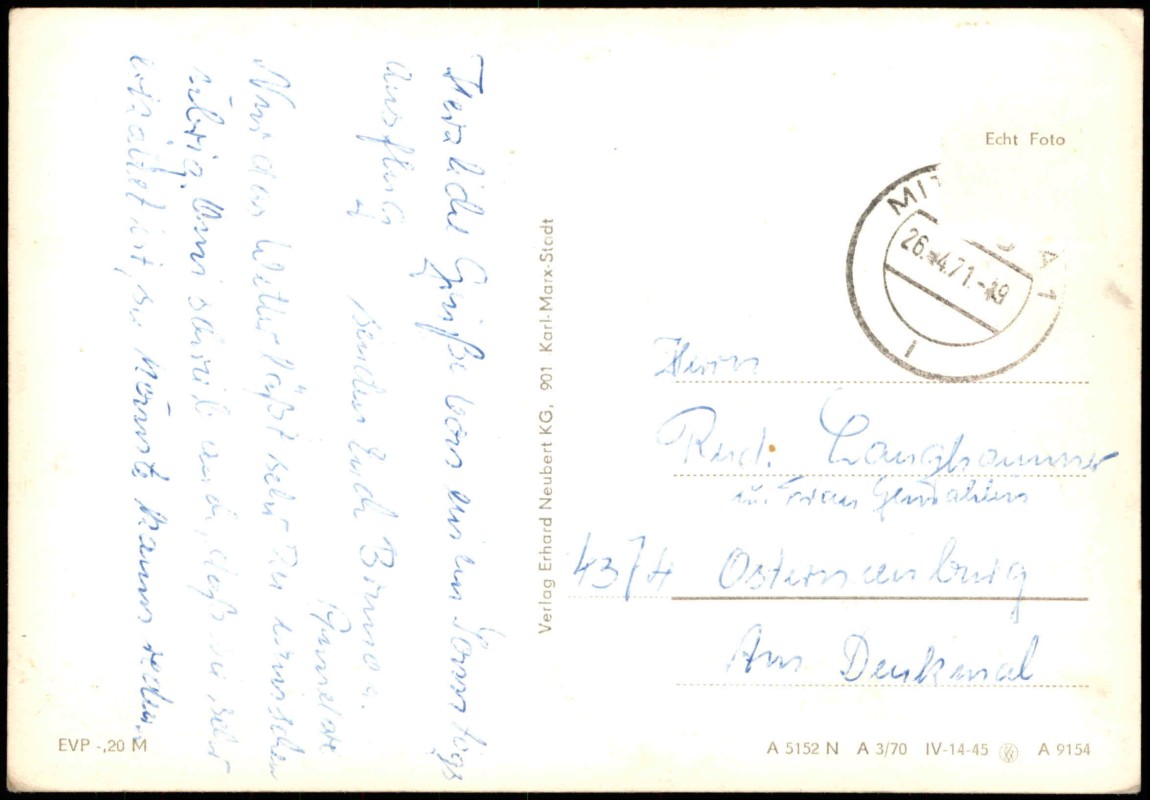 Herzliche Grüße von einem Sonntags
ausflug senden Euch Bruno u.
Annerose
Nur das Wetter läßt sehr zu wünschen
übrig. Omi schrieb auch, daß sie sehr
erkältet ist, sie könnte kaum reden.
Verlag Erhard Neubert KG, 901 Karl-Marx-Stadt
Echt Foto
MIT
26.-4.71.-19
A 1
Herrn
Rud. Langhammer
u. Frau Gemahlin
4374 Osternienburg
Am Denkmal
EVP -,20 M
A 5152 N A 3/70 IV-14-45 A 9154